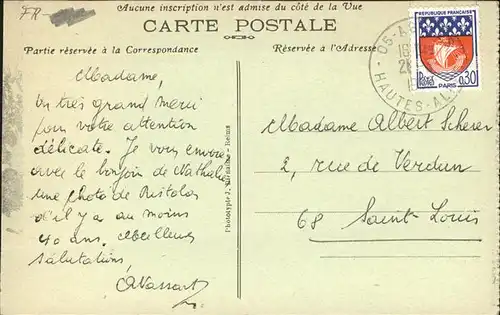 FR
Aucune inscription n'est admise du côté de la Vue
CARTE POSTALE
Partie réservée à la Correspondance
Réservée à l'Adresse
Madame,
Un très grand merci
pour votre attention
délicate. Je vous envoie
avec le bonjour de Nathalie
une photo de Ristolas
d'il y a au moins
40 ans. Meilleures
salutations,
Phototypie J. Reims
REPUBLIQUE FRANÇAISE
POSTES
0,30
PARIS
05
HAUTES-AL
Madame Albert Scherer
2, rue de Verdun
68 Saint Louis